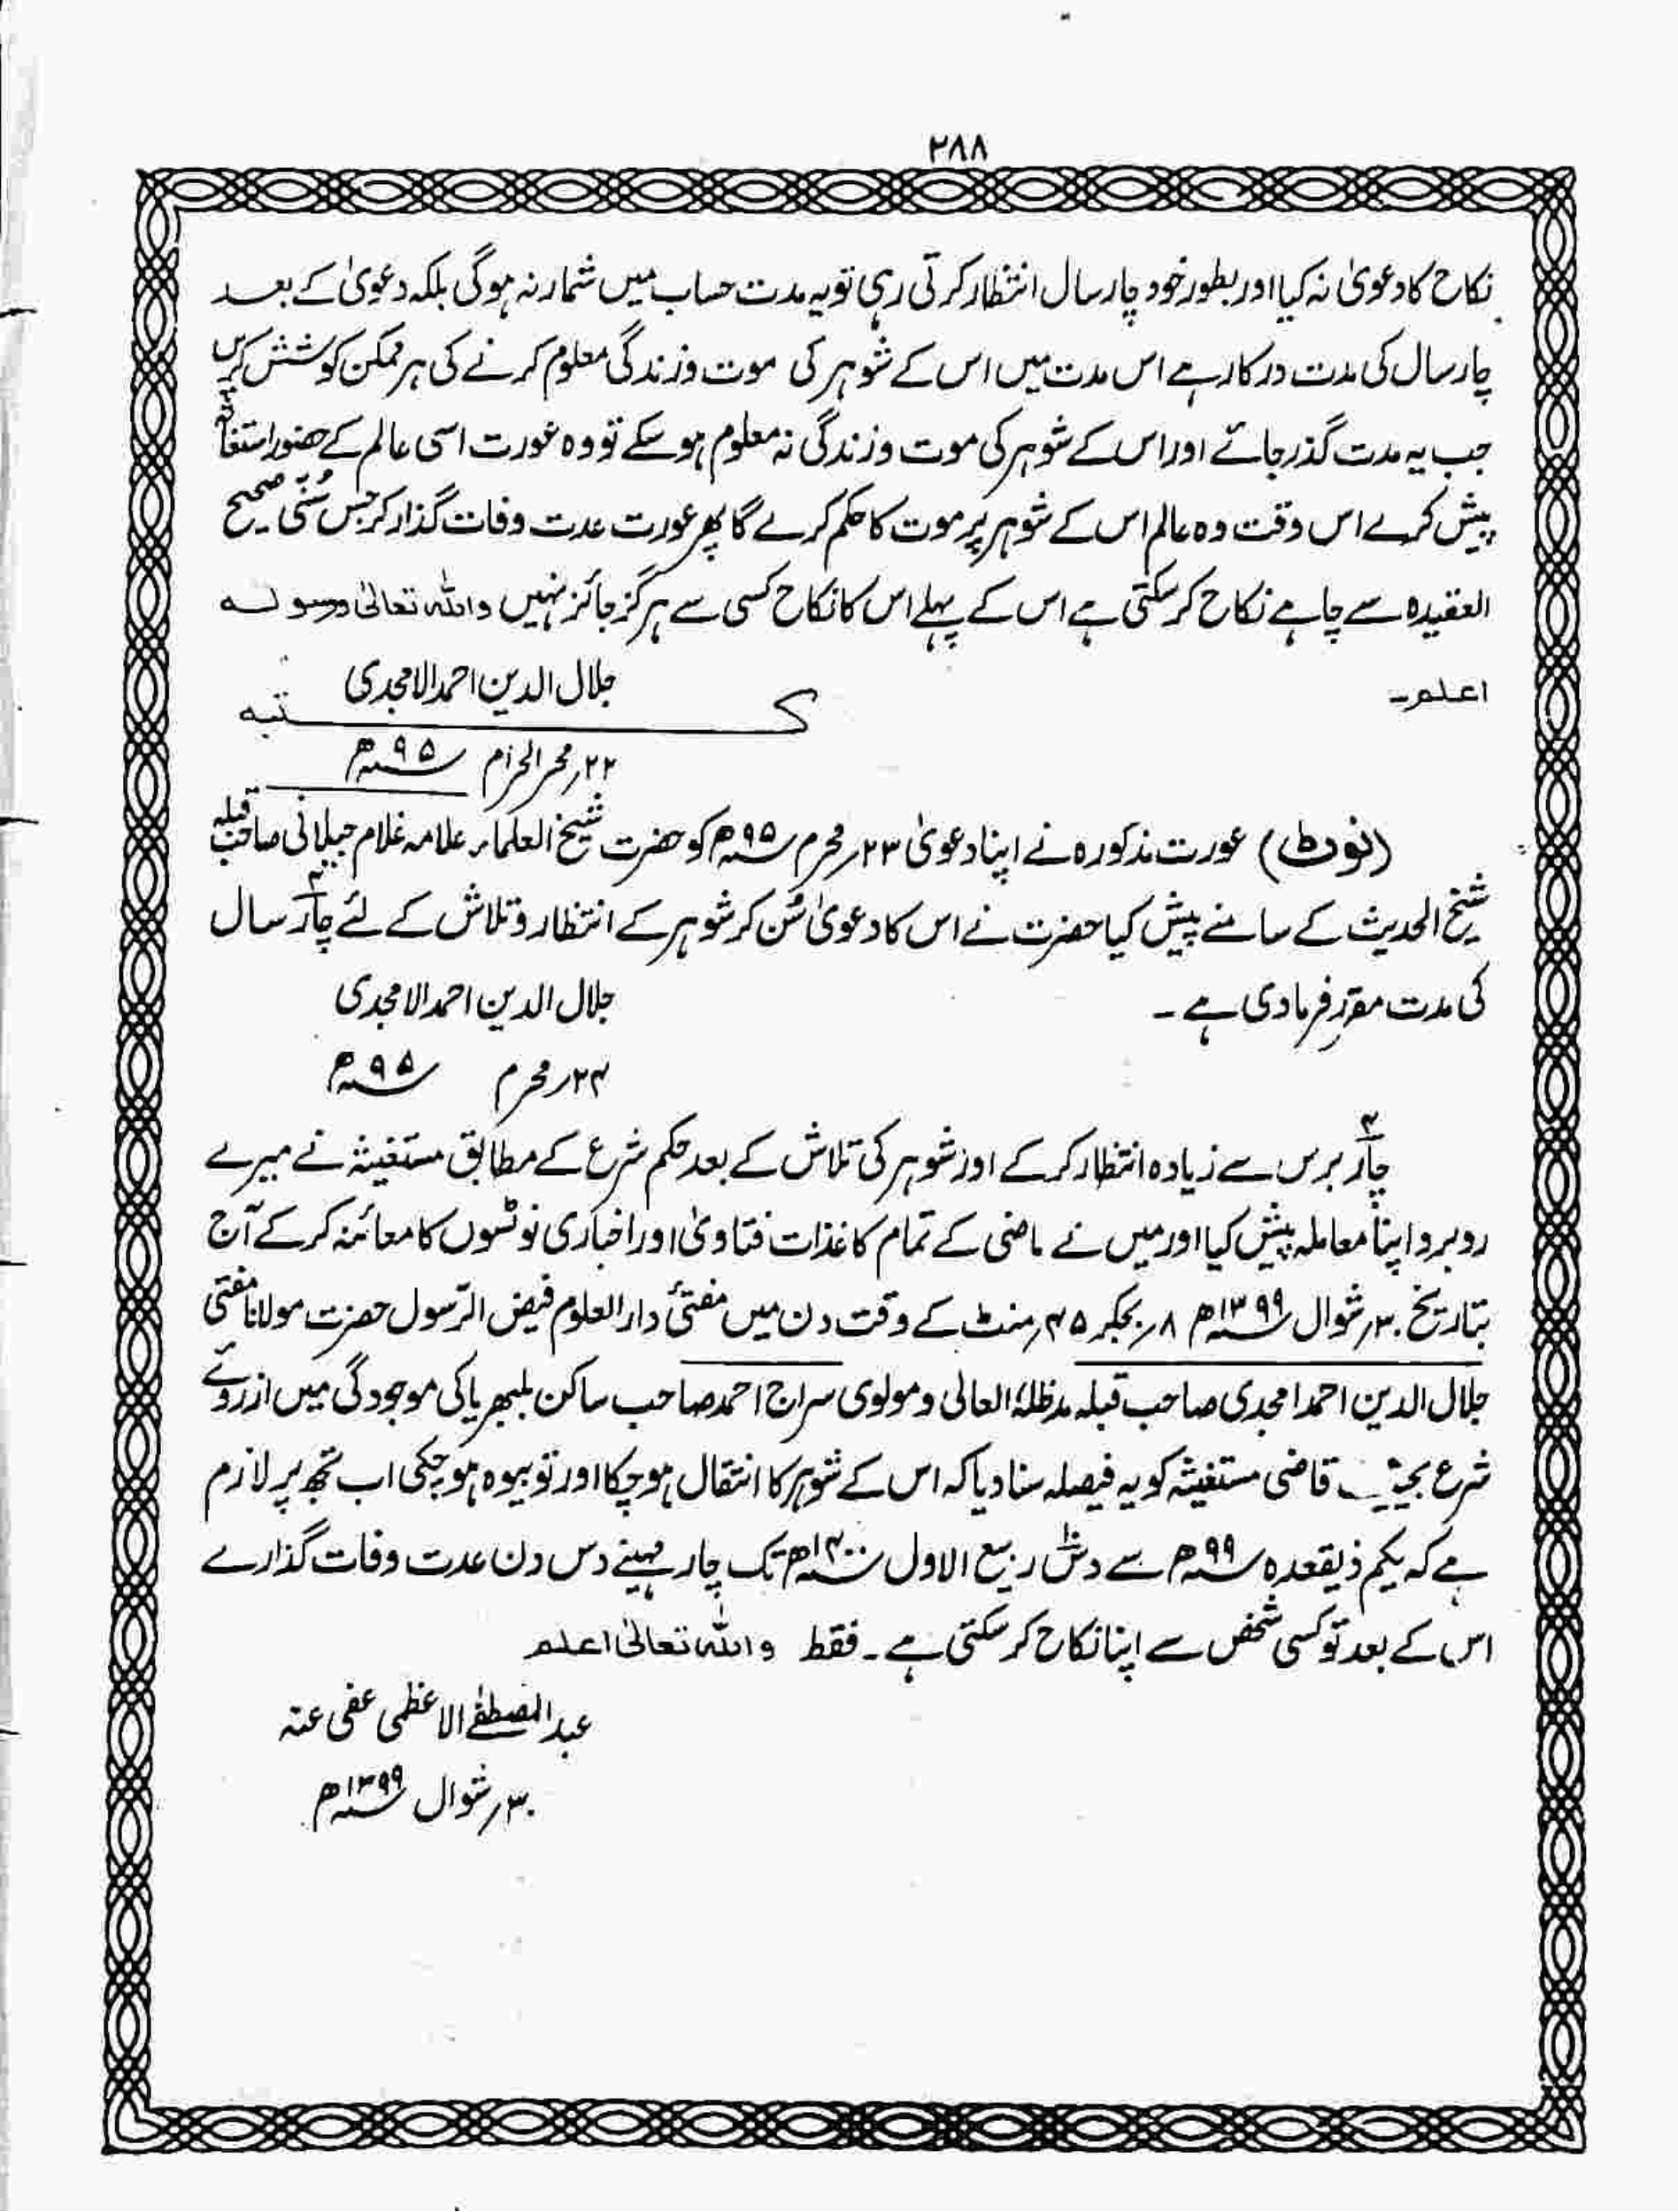 ۲۸۸
نکاح کا دعویٰ نہ کیا اور بطور خود چار سال انتظار کرتی رہی تو یہ مدت حساب میں شمار نہ ہوگی بلکہ دعویٰ کے بعد
چار سال کی مدت درکار ہے اس مدت میں اس کے شوہر کی موت و زندگی معلوم کرنے کی ہر ممکن کوشش کریں
جب یہ مدت گذر جائے اور اس کے شوہر کی موت و زندگی نہ معلوم ہو سکے تو وہ عورت اسی عالم کے حضور استغاثہ
پیش کرے اس وقت وہ عالم اس کے شوہر پر موت کا حکم کرے گا پھر عورت عدت وفات گذار کر جس سُنّی صحیح
العقیدہ سے چاہے نکاح کر سکتی ہے اس کے پہلے اس کا نکاح کسی سے ہرگز جائز نہیں واللہ تعالیٰ ورسولہ
اعلم۔
جلال الدین احمد الامجدی
کتبہ
۲۲؍ محرم الحرام ۹۵ھ
(نوٹ) عورت مذکورہ نے اپنا دعویٰ ۲۳؍ محرم ۹۵ھ کو حضرت شیخ العلماء علامہ غلام جیلانی صاحب قبلہ
شیخ الحدیث کے سامنے پیش کیا حضرت نے اس کا دعویٰ سُن کر شوہر کے انتظار و تلاش کے لئے چار۴ سال
کی مدت مقرر فرمادی ہے۔
جلال الدین احمد الامجدی
۲۴؍ محرم ۹۵ھ
چار۴ برس سے زیادہ انتظار کرکے اور شوہر کی تلاش کے بعد حکم شرع کے مطابق مستغیثہ نے میرے
روبرو اپنا معاملہ پیش کیا اور میں نے ماضی کے تمام کاغذات فتاویٰ اور اخباری نوٹسوں کا معائنہ کرکے آج
بتاریخ ۳۰؍ شوال ۱۳۹۹ھ ۸؍ بجکر ۴۵؍ منٹ کے وقت دن میں مفتیٔ دارالعلوم فیض الرّسول حضرت مولانا مفتی
جلال الدین احمد امجدی صاحب قبلہ مدظلہٗ العالی و مولوی سراج احمد صاحب ساکن بلبھریا کی موجودگی میں ازروئے
شرع بحیثیت قاضی مستغیثہ کو یہ فیصلہ سنا دیا کہ اس کے شوہر کا انتقال ہو چکا اور تو بیوہ ہو چکی اب تجھ پر لازم
ہے کہ یکم ذیقعدہ ۹۹ھ سے دس۱۰ ربیع الاول ۱۴۰۰ھ تک چار مہینے دس دن عدت وفات گذارے
اس کے بعد تو کسی شخص سے اپنا نکاح کر سکتی ہے۔ فقط واللہ تعالیٰ اعلم
عبد المصطفےٰ الاعظمی عفی عنہ
۳۰؍ شوال ۱۳۹۹ھ